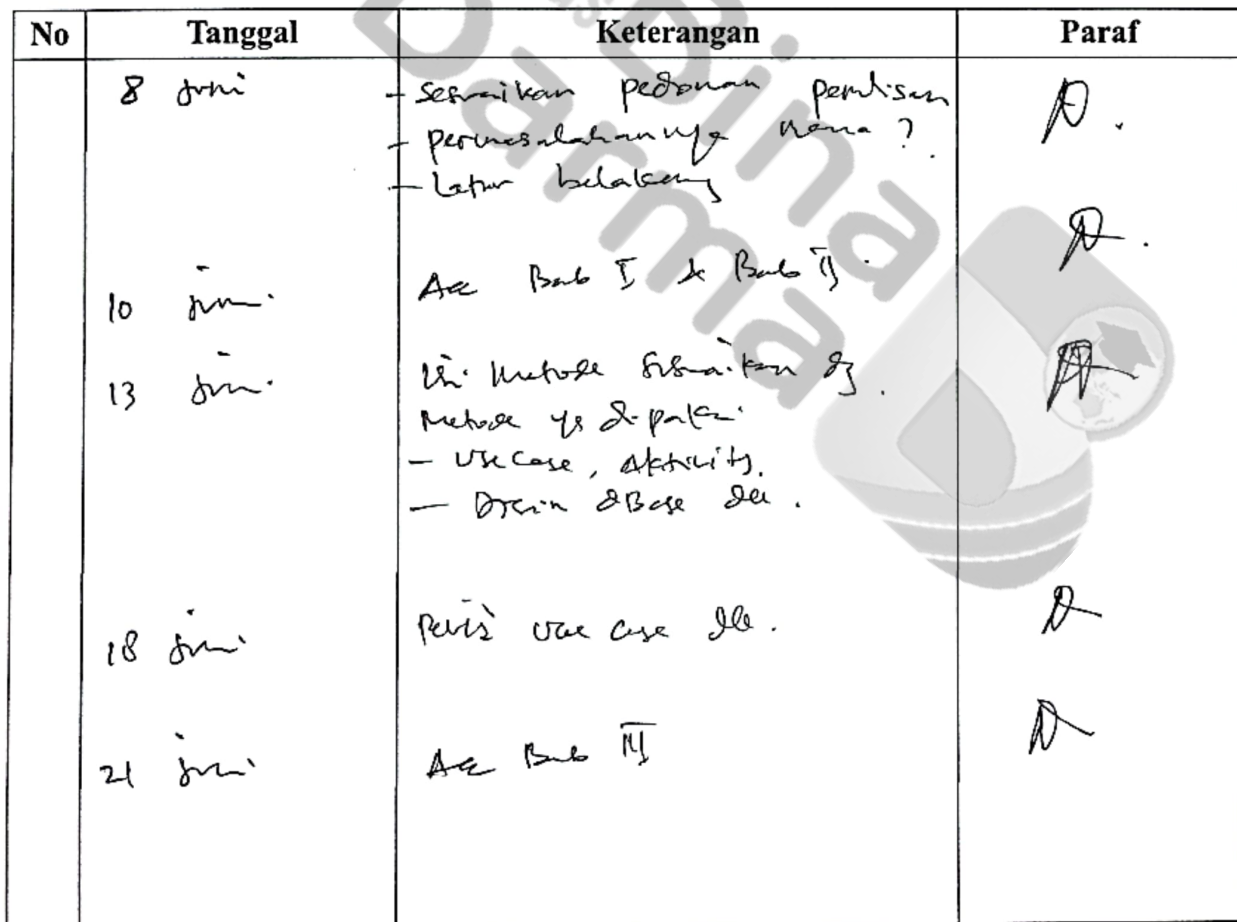 Bina
Darma
No Tanggal Keterangan Paraf
8 Juni - Sesuaikan pedoman penulisan
- permasalahannya mana ?
- Latar belakang
10 Juni Acc Bab I & Bab II
13 Juni Isi Metode Sesuaikan dg
Metode yg dipakai
- Use Case, Aktivity
- Desain dBase dll.
18 Juni Revisi use case dll.
21 Juni Acc Bab III